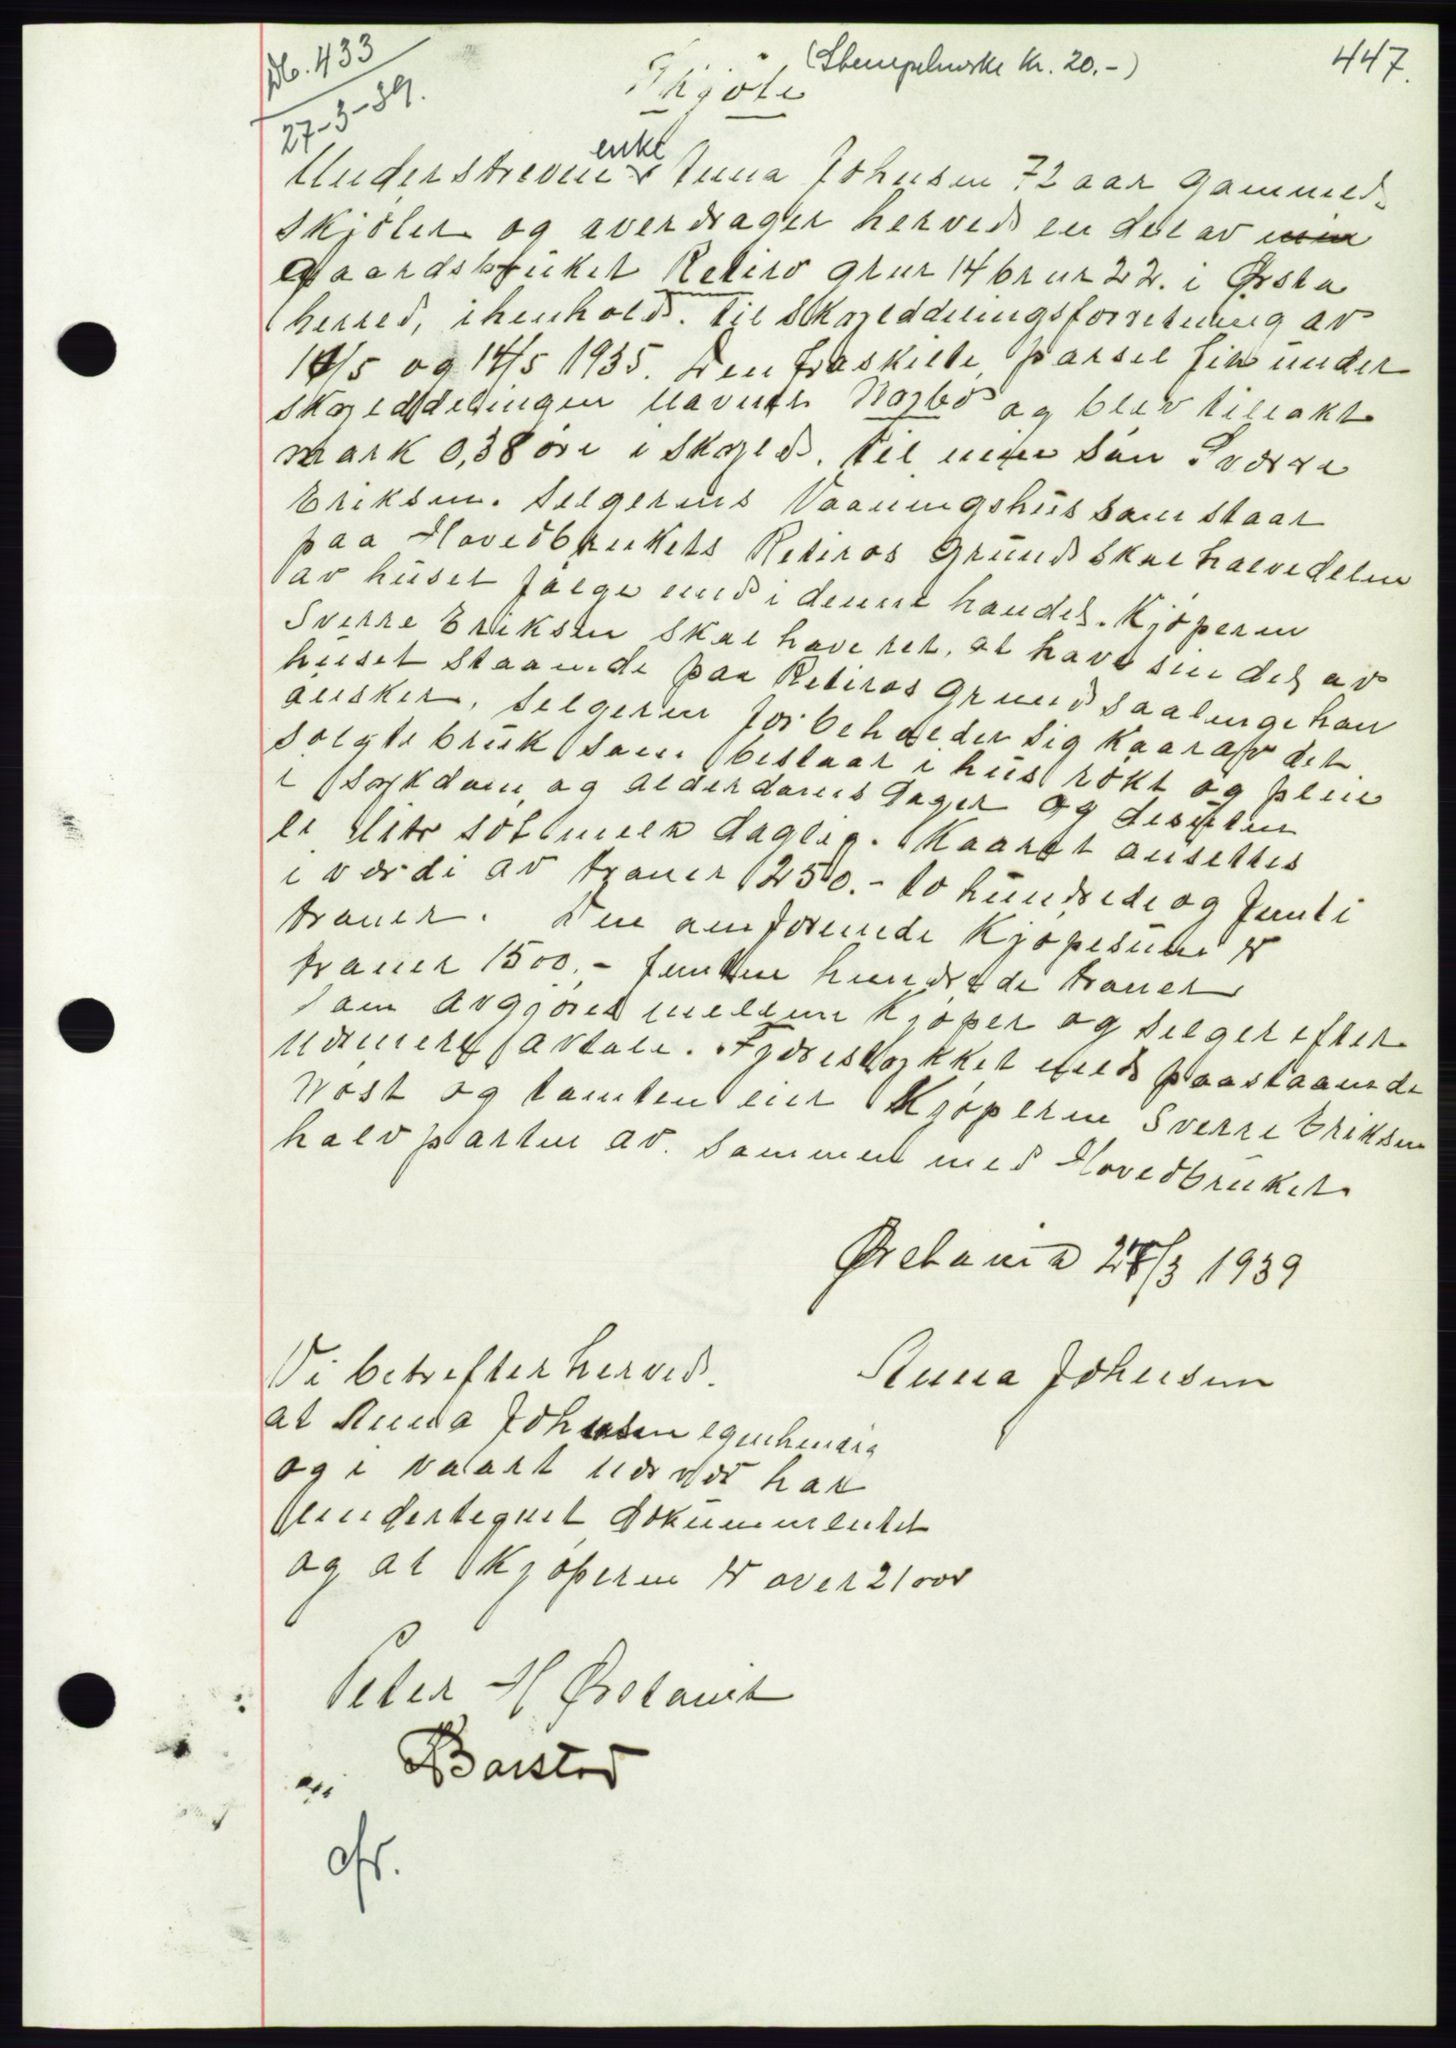 Db. 433
27-3-39.
(Stempelmerke kr. 20.-)
447.
Skjöte
enke
Underskrevne Anna Johnsen 72 aar gammel.
skjöter og overdrager herved en del av min
gaardsbruket Retiro grnr 14 brnr 22. i Ørsta
herred, ihenhold. til skylddelingsforretning av
14/5 1935. Den fraskilte parsel fik under
skylddelingen navnet Nybö og blev tillakt
mark 0,38 öre i skyld. til min sön Sverre
Eriksen. Selgerens Vaaningshus som staar
paa Hovedbrukets Retiros grund skal halvedelen
av huset fölge med i denne handel. Kjöperen
Sverre Eriksen skal have ret. at have sin del av
huset staaende paa Retiros grund saalenge han
önsker. Selgeren forbeholder sig kaar av det
solgte bruk som bestaar i hus rökt og pleie
i sykdom og alderdoms dager og desuten
li liter söt melk daglig. Kaaret ansettes
i verdi av kroner 250.- to hundrede og femti
kroner. Den omforenede Kjöpesum er
kroner 1500.- femten hundrede kroner
som avgjöres mellem Kjöper og selger efter
nærmere avtale. Fjærestykket med paastaaende
Nöst og tomten eier Kjöperen Sverre Eriksen
halvparten av. sammen med Hovedbruket.
Ørstavik 27/3 1939
Vi bekrefter herved.
Anna Johnsen
at Anna Johnsen egenhendig
og i vaart nærvær har
undertegnet dokummentet
og at Kjöperen er over 21 aar
Peter H Ørstavik
Barstad